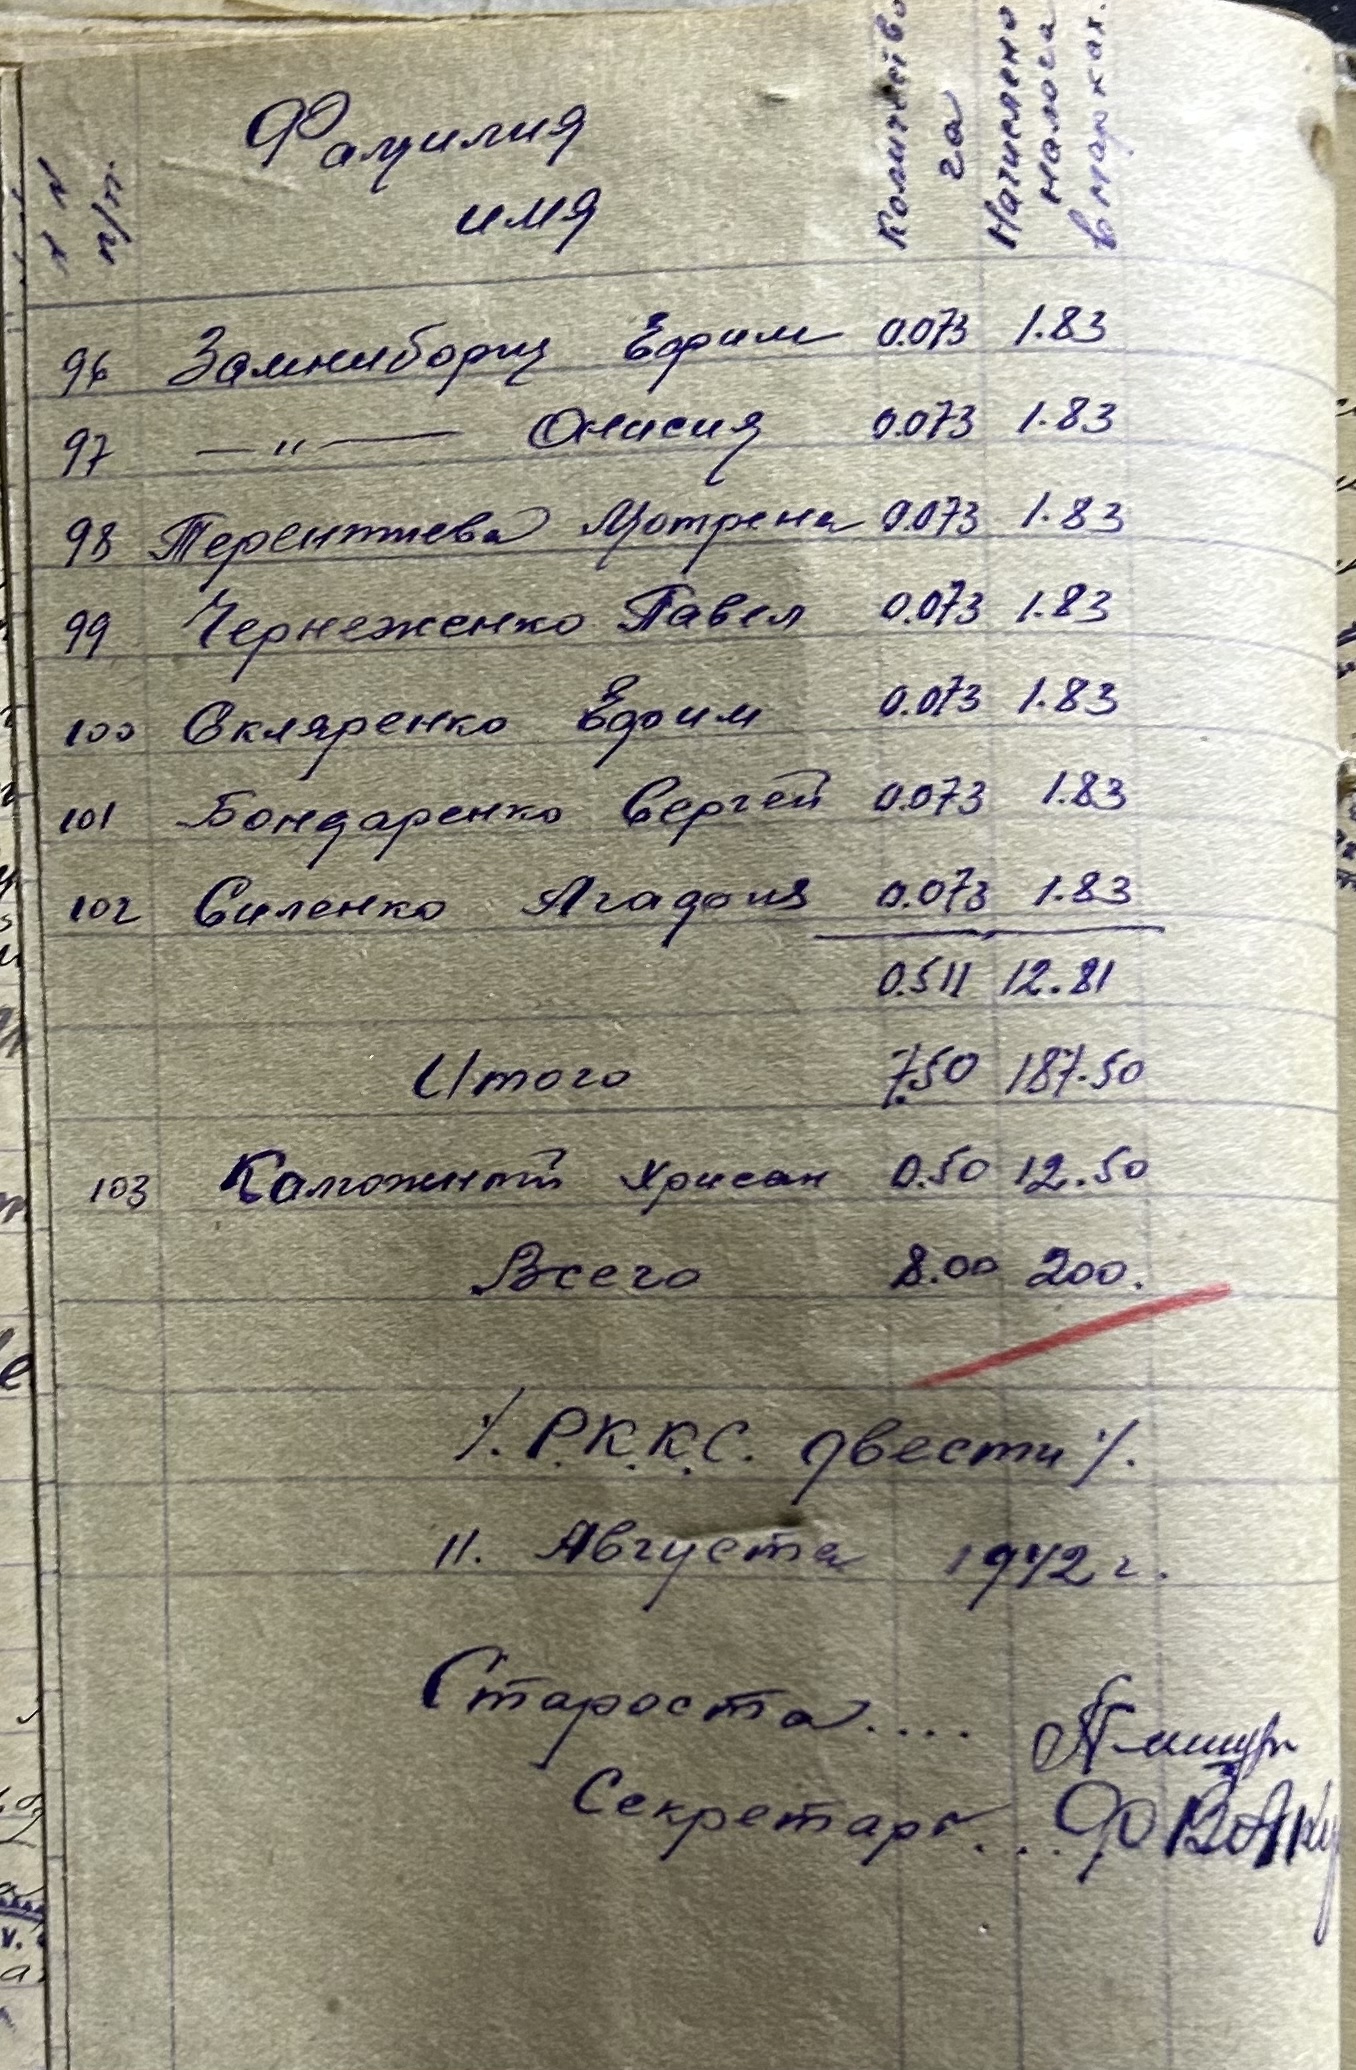 №№ п/п. Фамилия имя Количество га Начислено налога в марках.
96 Замниборщ Ефим 0.073 1.83
97 — " — Онисия 0.073 1.83
98 Терентиева Мотрена 0.073 1.83
99 Чернеженко Павел 0.073 1.83
100 Скляренко Ефим 0.073 1.83
101 Бондаренко Сергей 0.073 1.83
102 Силенко Агафия 0.073 1.83
0.511 12.81
Итого 7.50 187.50
103 Калюжный Хрисан 0.50 12.50
Всего 8.00 200.
/. Р.К.К.С. двести /.
11. Августа 1942 г.
Староста....
Секретарь...